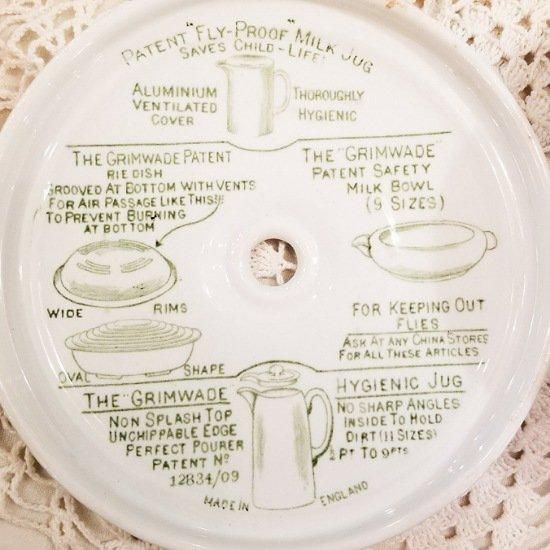 PATENT "FLY-PROOF" MILK JUG
SAVES CHILD-LIFE!
ALUMINIUM
VENTILATED
COVER
THOROUGHLY
HYGIENIC
THE GRIMWADE PATENT
PIE DISH
GROOVED AT BOTTOM WITH VENTS
FOR AIR PASSAGE LIKE THIS!!!
TO PREVENT BURNING
AT BOTTOM
WIDE RIMS
OVAL SHAPE
THE "GRIMWADE"
PATENT SAFETY
MILK BOWL
(9 SIZES)
FOR KEEPING OUT
FLIES
ASK AT ANY CHINA STORES
FOR ALL THESE ARTICLES
THE "GRIMWADE
NON SPLASH TOP
UNCHIPPABLE EDGE
PERFECT POURER
PATENT NO
12834/09
HYGIENIC JUG
NO SHARP ANGLES
INSIDE TO HOLD
DIRT (11 SIZES)
PT TO 9PTS
MADE IN ENGLAND